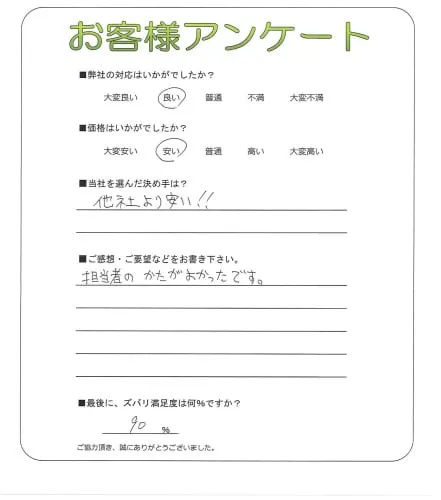 お客様アンケート
■弊社の対応はいかがでしたか？
大変良い 良い 普通 不満 大変不満
■価格はいかがでしたか？
大変安い 安い 普通 高い 大変高い
■当社を選んだ決め手は？
他社より安い!!
■ご感想・ご要望などをお書き下さい。
担当者の かたがよかったです。
■最後に、ズバリ満足度は何%ですか？
90 %
ご協力頂き、誠にありがとうございました。